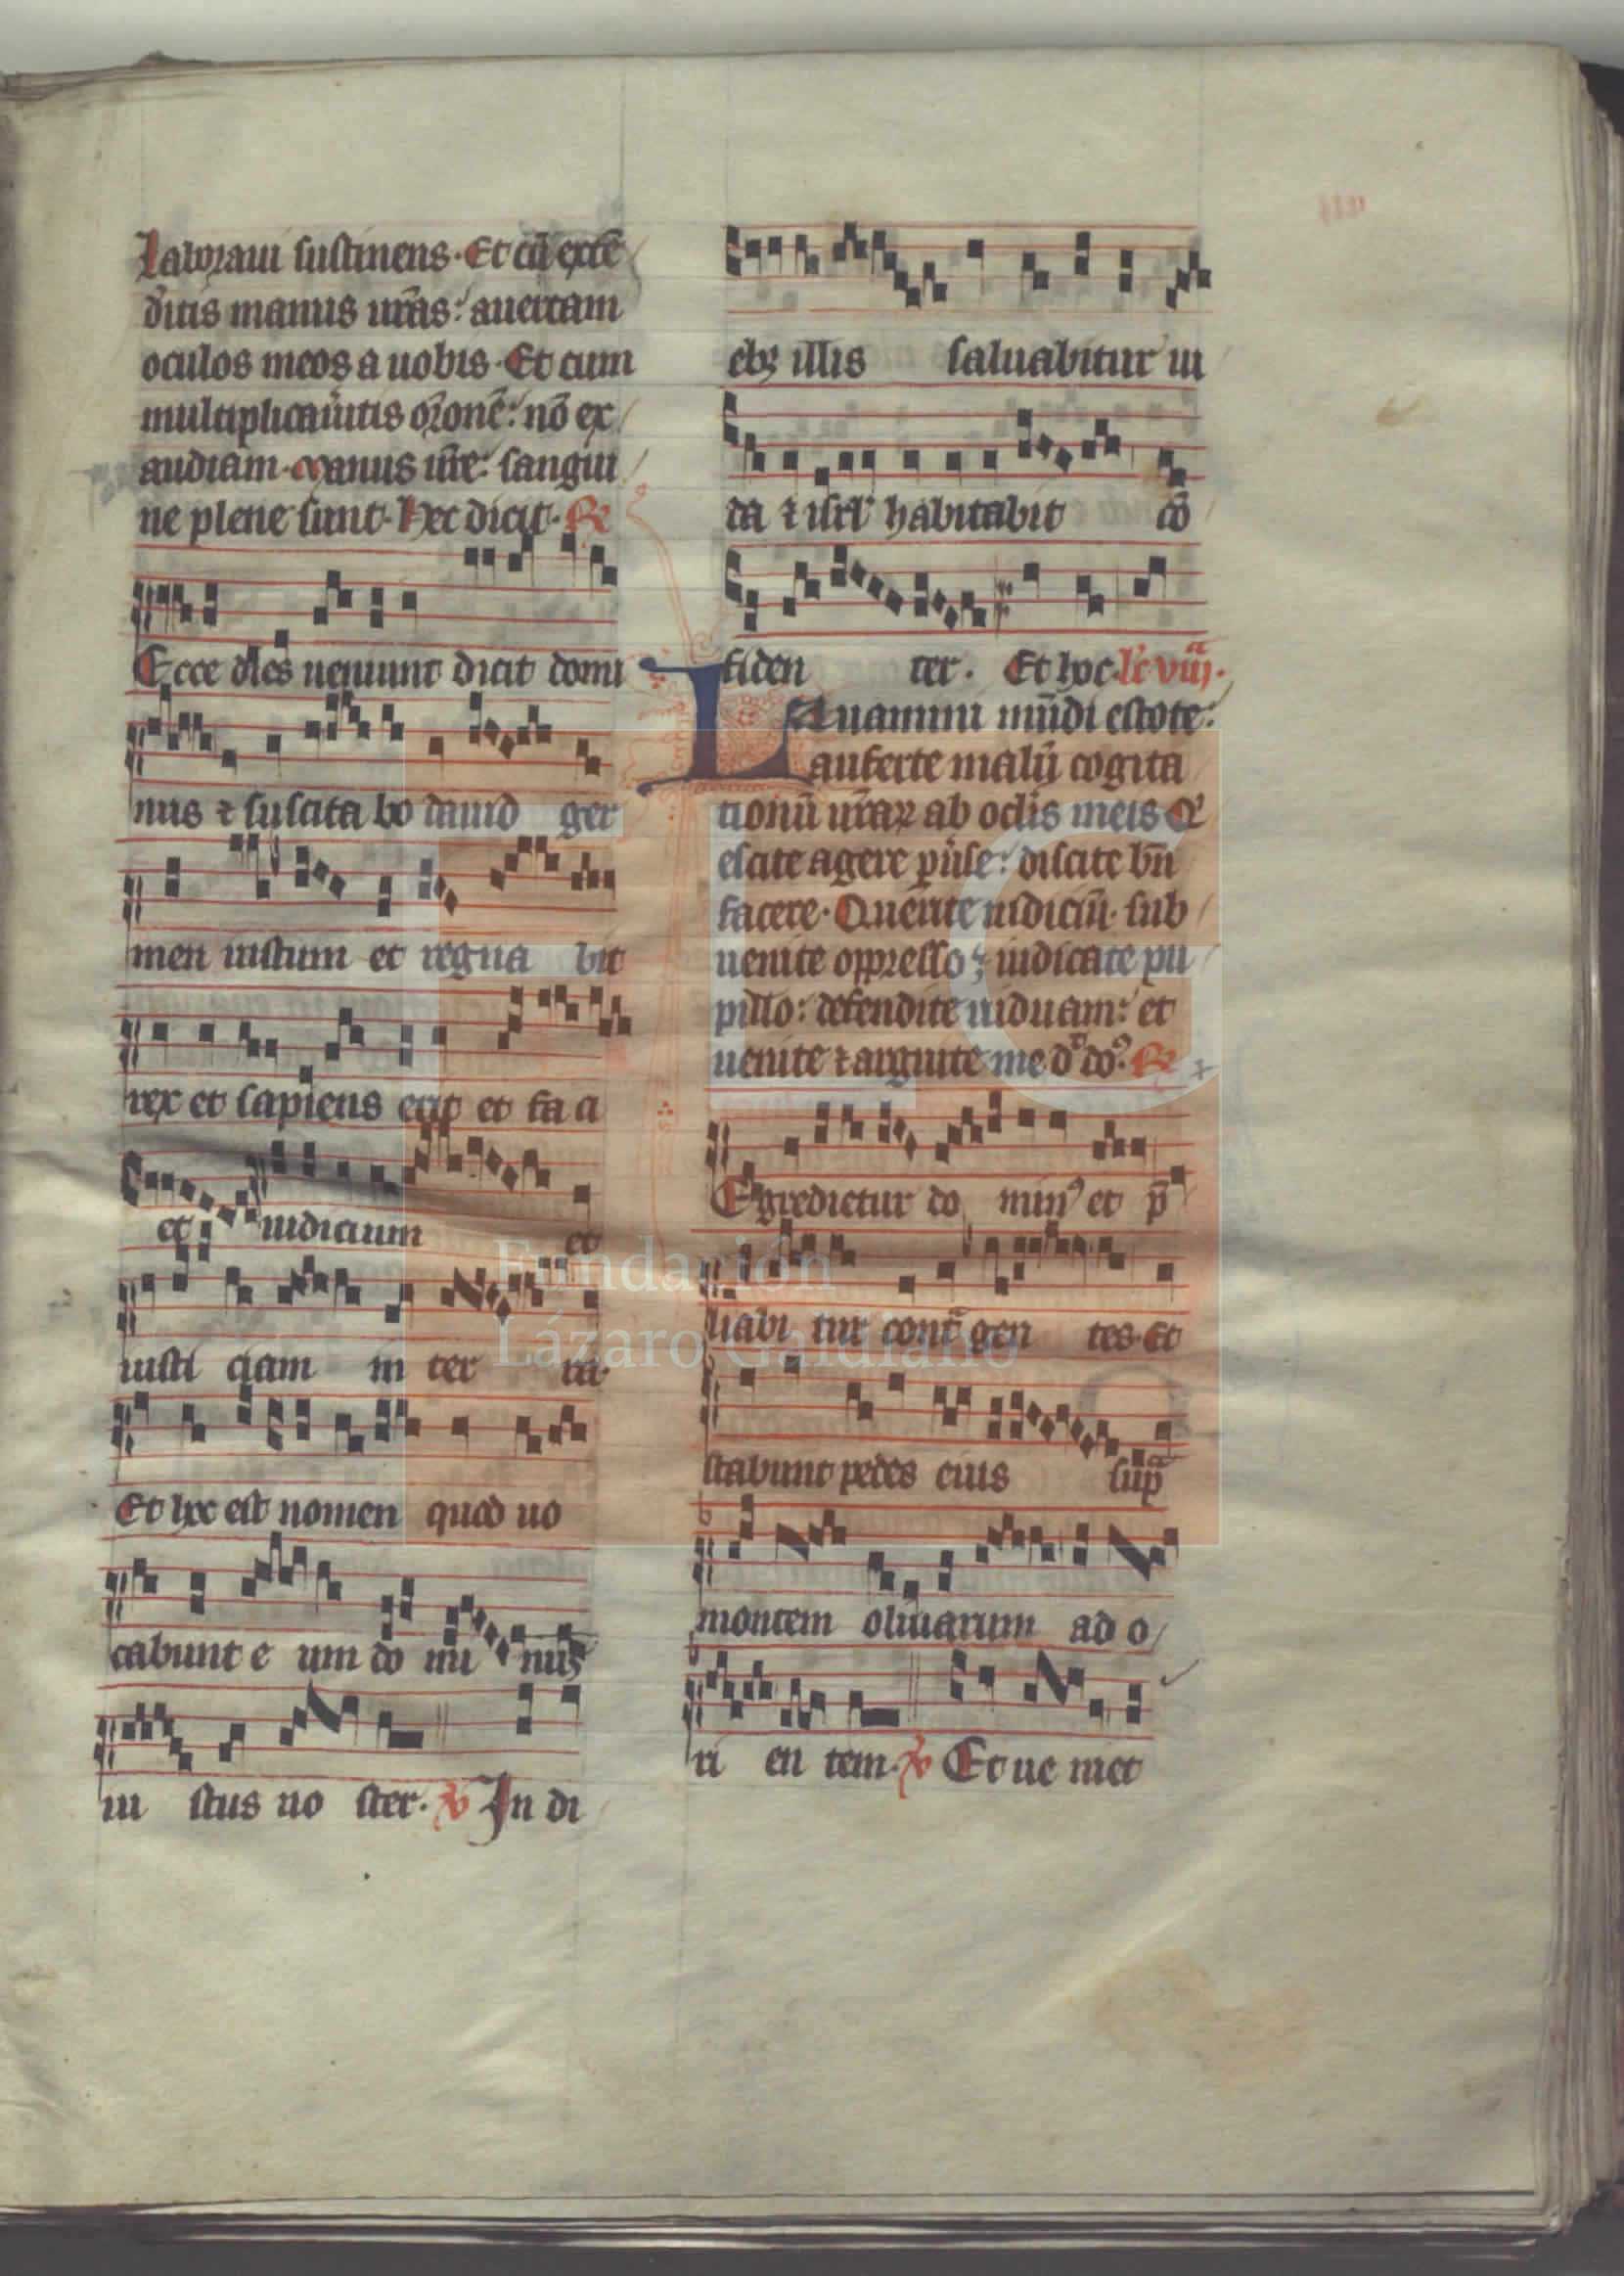 Laboraui sustinens. Et cū extē
ditis manus ur̄as: auertam
oculos meos a uobis. Et cum
multiplicau̓itis or̄onē: nō ex
audiam. Manus ur̄e: sangui
ne plene sunt. Hec dicit. R
Ecce dies ueniunt dicit domi
nus ⁊ suscita bo dauid ger
men iustum et regna bit
rex et sapiens erit et fa ci
et iudicium et
iusti ciam in ter ra.
Et hoc est nomen quod uo
cabunt e um do mi nus
iu stus no ster. V In di
ebꝫ illis saluabitur iu
da ⁊ isrl̓ habitabit cō
fiden ter. Et hoc. lc̄ viij.
Lauamini mūdi estote:
auferte malū cogita
tionū ur̄aꝝ ab oclis meis. Qi
escite agere ꝑu̓se: discite bn̄
facere. Querite iudiciū. sub
uenite oppresso; iudicate pu
pillo: defendite uiduam: et
uenite ⁊ arguite me d̄ do. R
Egredietur do min⁹ et p̄
liabi tur cont̄ gen tes. Et
stabunt pedes eius sup̄
montem oliuarum ad o
ri en tem. V Et ue niet
Fundación
Lázaro Galdiano